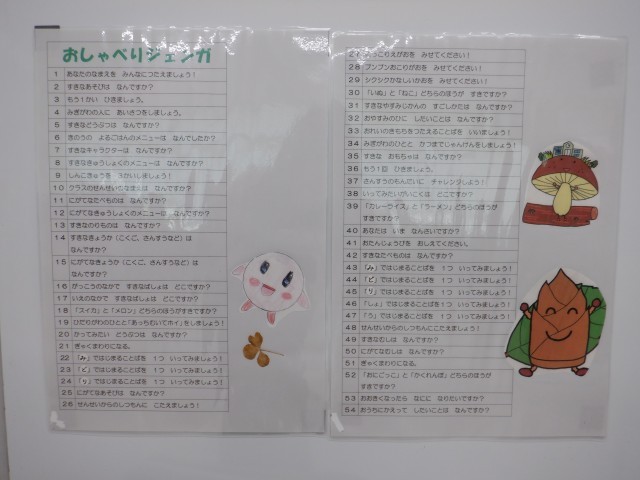 おしゃべりジェンガ
1 あなたのなまえを みんなにつたえましょう！
2 すきなあそびは なんですか？
3 もう１かい ひきましょう。
4 みぎがわの人に あいさつをしましょう。
5 すきなどうぶつは なんですか？
6 きのうの よるごはんのメニューは なんでしたか？
7 すきなキャラクターは なんですか？
8 すきなきゅうしょくのメニューは なんですか？
9 しんこきゅうを ３かいしましょう！
10 クラスのせんせいのなまえは なんですか？
11 にがてなたべものは なんですか？
12 にがてなきゅうしょくのメニューは なんですか？
13 すきなのりものは なんですか？
14 すきなきょうか（こくご、さんすうなど）は
なんですか？
15 にがてなきょうか（こくご、さんすうなど）は
なんですか？
16 がっこうのなかで すきなばしょは どこですか？
17 いえのなかで すきなばしょは どこですか？
18 「スイカ」と「メロン」どちらのほうがすきですか？
19 ひだりがわのひとと「あっちむいてホイ」をしましょう！
20 かってみたい どうぶつは なんですか？
21 ぎゃくまわりになる。
22 「み」ではじまることばを １つ いってみましょう！
23 「ど」ではじまることばを １つ いってみましょう！
24 「り」ではじまることばを １つ いってみましょう！
25 にがてなあそびは なんですか？
26 せんせいからのしつもんに こたえましょう！
27 にっこりえがおを みせてください！
28 プンプンおこりがおを みせてください！
29 シクシクかなしいかおを みせてください！
30 「いぬ」と「ねこ」どちらのほうが すきですか？
31 すきなやすみじかんの すごしかたは なんですか？
32 おやすみのひに したいことは なんですか？
33 おれいのきもちをつたえることばを いいましょう！
34 みぎがわのひとと かつまでじゃんけんをしましょう！
35 すきな おもちゃは なんですか？
36 もう１回 ひきましょう。
37 さんすうのもんだいに チャレンジしよう！
38 いってみたいがいこくは どこですか？
39 「カレーライス」と「ラーメン」どちらのほうが
すきですか？
40 あなたは いま なんさいですか？
41 おたんじょうびを おしえてください。
42 すきなたべものは なんですか？
43 「み」ではじまることばを １つ いってみましょう！
44 「ど」ではじまることばを １つ いってみましょう！
45 「り」ではじまることばを １つ いってみましょう！
46 「しょ」ではじまることばを １つ いってみましょう！
47 「う」ではじまることばを １つ いってみましょう！
48 せんせいのしつもんにこたえましょう！
49 すきなむしは なんですか？
50 にがてなむしは なんですか？
51 ぎゃくまわりになる。
52 「おにごっこ」と「かくれんぼ」どちらのほうが
すきですか？
53 おおきくなったら なにに なりたいですか？
54 おうちにかえって したいことは なんですか？